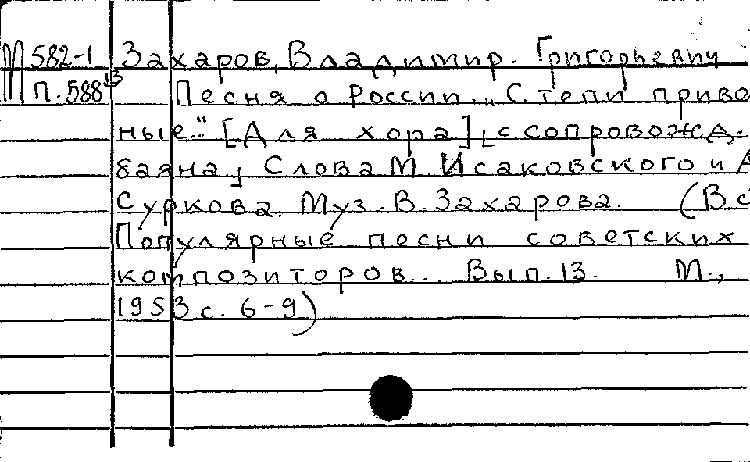 М 582-1 Захаров, Владимир Григорьевич
П.588¹³ Песня о России. "Степи приво
ные." [Для хора] [с сопровожд.
баяна] Слова М. Исаковского и А
Суркова. Муз. В. Захарова. (В с
Популярные песни советских
композиторов. Вып. 13. М.,
1953 с. 6-9)